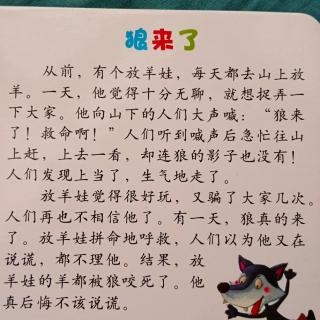 狼来了
从前，有个放羊娃，每天都去山上放
羊。一天，他觉得十分无聊，就想捉弄一
下大家。他向山下的人们大声喊：“狼来
了！救命啊！”人们听到喊声后急忙往山
上赶，上去一看，却连狼的影子也没有！
人们发现上当了，生气地走了。
放羊娃觉得很好玩，又骗了大家几次。
人们再也不相信他了。有一天，狼真的来
了。放羊娃拼命地呼救，人们以为他又在
说谎，都不理他。结果，放
羊娃的羊都被狼咬死了。他
真后悔不该说谎。